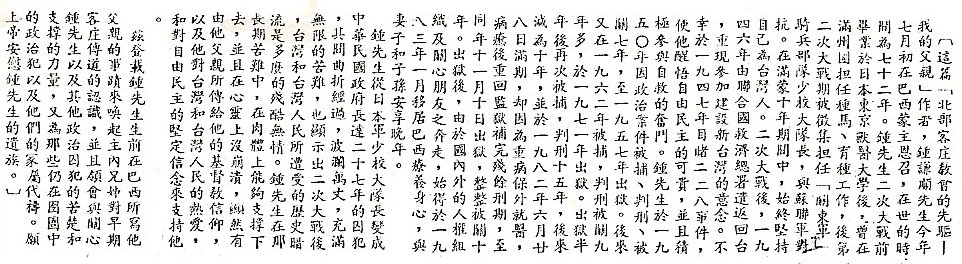 〔這篇「北部客庄教會的先驅—
我的父親」作者,鍾謙順先生今年
七月初在巴西蒙主恩召,在世的時
間為七十二年。鍾先生二次大戰前
畢業於日本東京獸醫大學後,曾在
滿州國担任種馬、育種工作,後第
二次大戰期被徵集担任「關東軍」
騎兵部隊少校大隊長,與蘇聯軍對
抗。在滿蒙十年期間中,始終堅持
自己為台灣人。二次大戰後,一九
四六年由聯合國救濟總署遣返回台
,重現參加建設新台灣的意念。不
幸於一九四七年目睹二二八事件,
使他醒悟自由民主的可貴,並且積
極參與自救的奮鬥。鍾先生於一九
五○年因政治案件被捕、判刑、被
關七年,至一九五七年出獄。後來
又在一九六二年被捕,判刑被關九
年多,於一九七一年出獄。出獄半
年後再次被捕,判刑十五年,後來
減為十年,並於一九八二年六月廿
八日滿期,却因為重病保外就醫,
病癒後重回監獄補完殘餘刑期,到
同年十一月十日出獄,整整被關十
年。出獄後,由於國內外的人權組
織及關心朋友之奔走,始得於一九
八三年一月移居巴西療養身心,與
妻子和子孫安享晚年。
鍾先生從日本軍少校大隊長變成
中華民國政府長達二十七年的囚犯
,其間曲折經過,波瀾萬丈,充滿
無限的苦難,也顯示出二次大戰後
,台灣和台灣人民所遭受的歷史暗
流是多麼的殘酷無情。鍾先生在那
長期苦難中,在肉體上能夠支撐下
去,並且在心靈上沒崩潰,顯然有
由他父親所傳給他的基督教信仰,
以及他對台灣和台灣人民的熱愛,
和對自由民主的堅定信念來支持他
。
茲登載鍾先生生前在巴西所寫他
父親的事蹟來喚起主內兄姊對早期
客庄傳道的認識,並且領會與關心
鍾先生以及其他政治囚犯的苦楚和
支撐的力量,又為那些仍在囹圄中
的政治犯以及他們的家屬代禱。願
上帝安慰鍾先生的遺族。〕